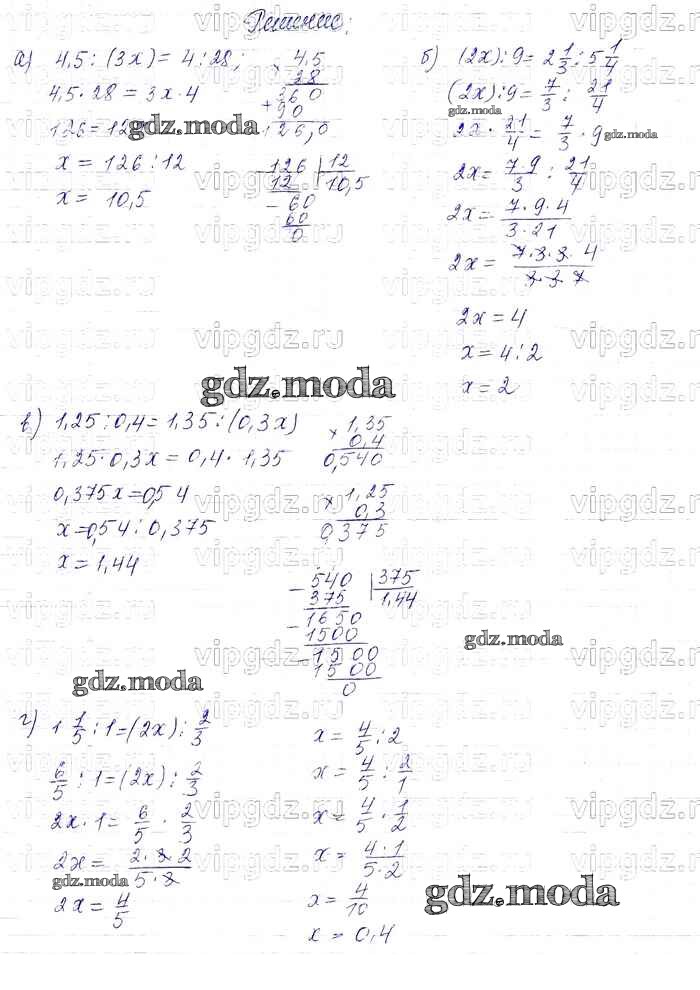 Решение:
а) 4,5 : (3x) = 4 : 28;
4,5 · 28 = 3x · 4
126 = 12
x = 126 : 12
x = 10,5
× 4,5
28
360
+ 90
126,0
126 | 12
12 | 10,5
- 60
60
0
б) (2x) : 9 = 2 1/3 : 5 1/4
(2x) : 9 = 7/3 : 21/4
2x · 21/4 = 7/3 · 9
2x = 7·9/3 : 21/4
2x = 7·9·4/3·21
2x = 7·3·3·4/3·3·7
2x = 4
x = 4 : 2
x = 2
в) 1,25 : 0,4 = 1,35 : (0,3x)
1,25 · 0,3x = 0,4 · 1,35
0,375x = 0,54
x = 0,54 : 0,375
x = 1,44
× 1,35
0,4
0,540
× 1,25
0,3
0,375
- 540 | 375
375 | 1,44
- 1650
1500
- 1500
1500
0
г) 1 1/5 : 1 = (2x) : 2/3
6/5 : 1 = (2x) : 2/3
2x · 1 = 6/5 · 2/3
2x = 2·3·2/5·3
2x = 4/5
x = 4/5 : 2
x = 4/5 : 2/1
x = 4/5 · 1/2
x = 4·1/5·2
x = 4/10
x = 0,4
gdz.moda
vipgdz.ru